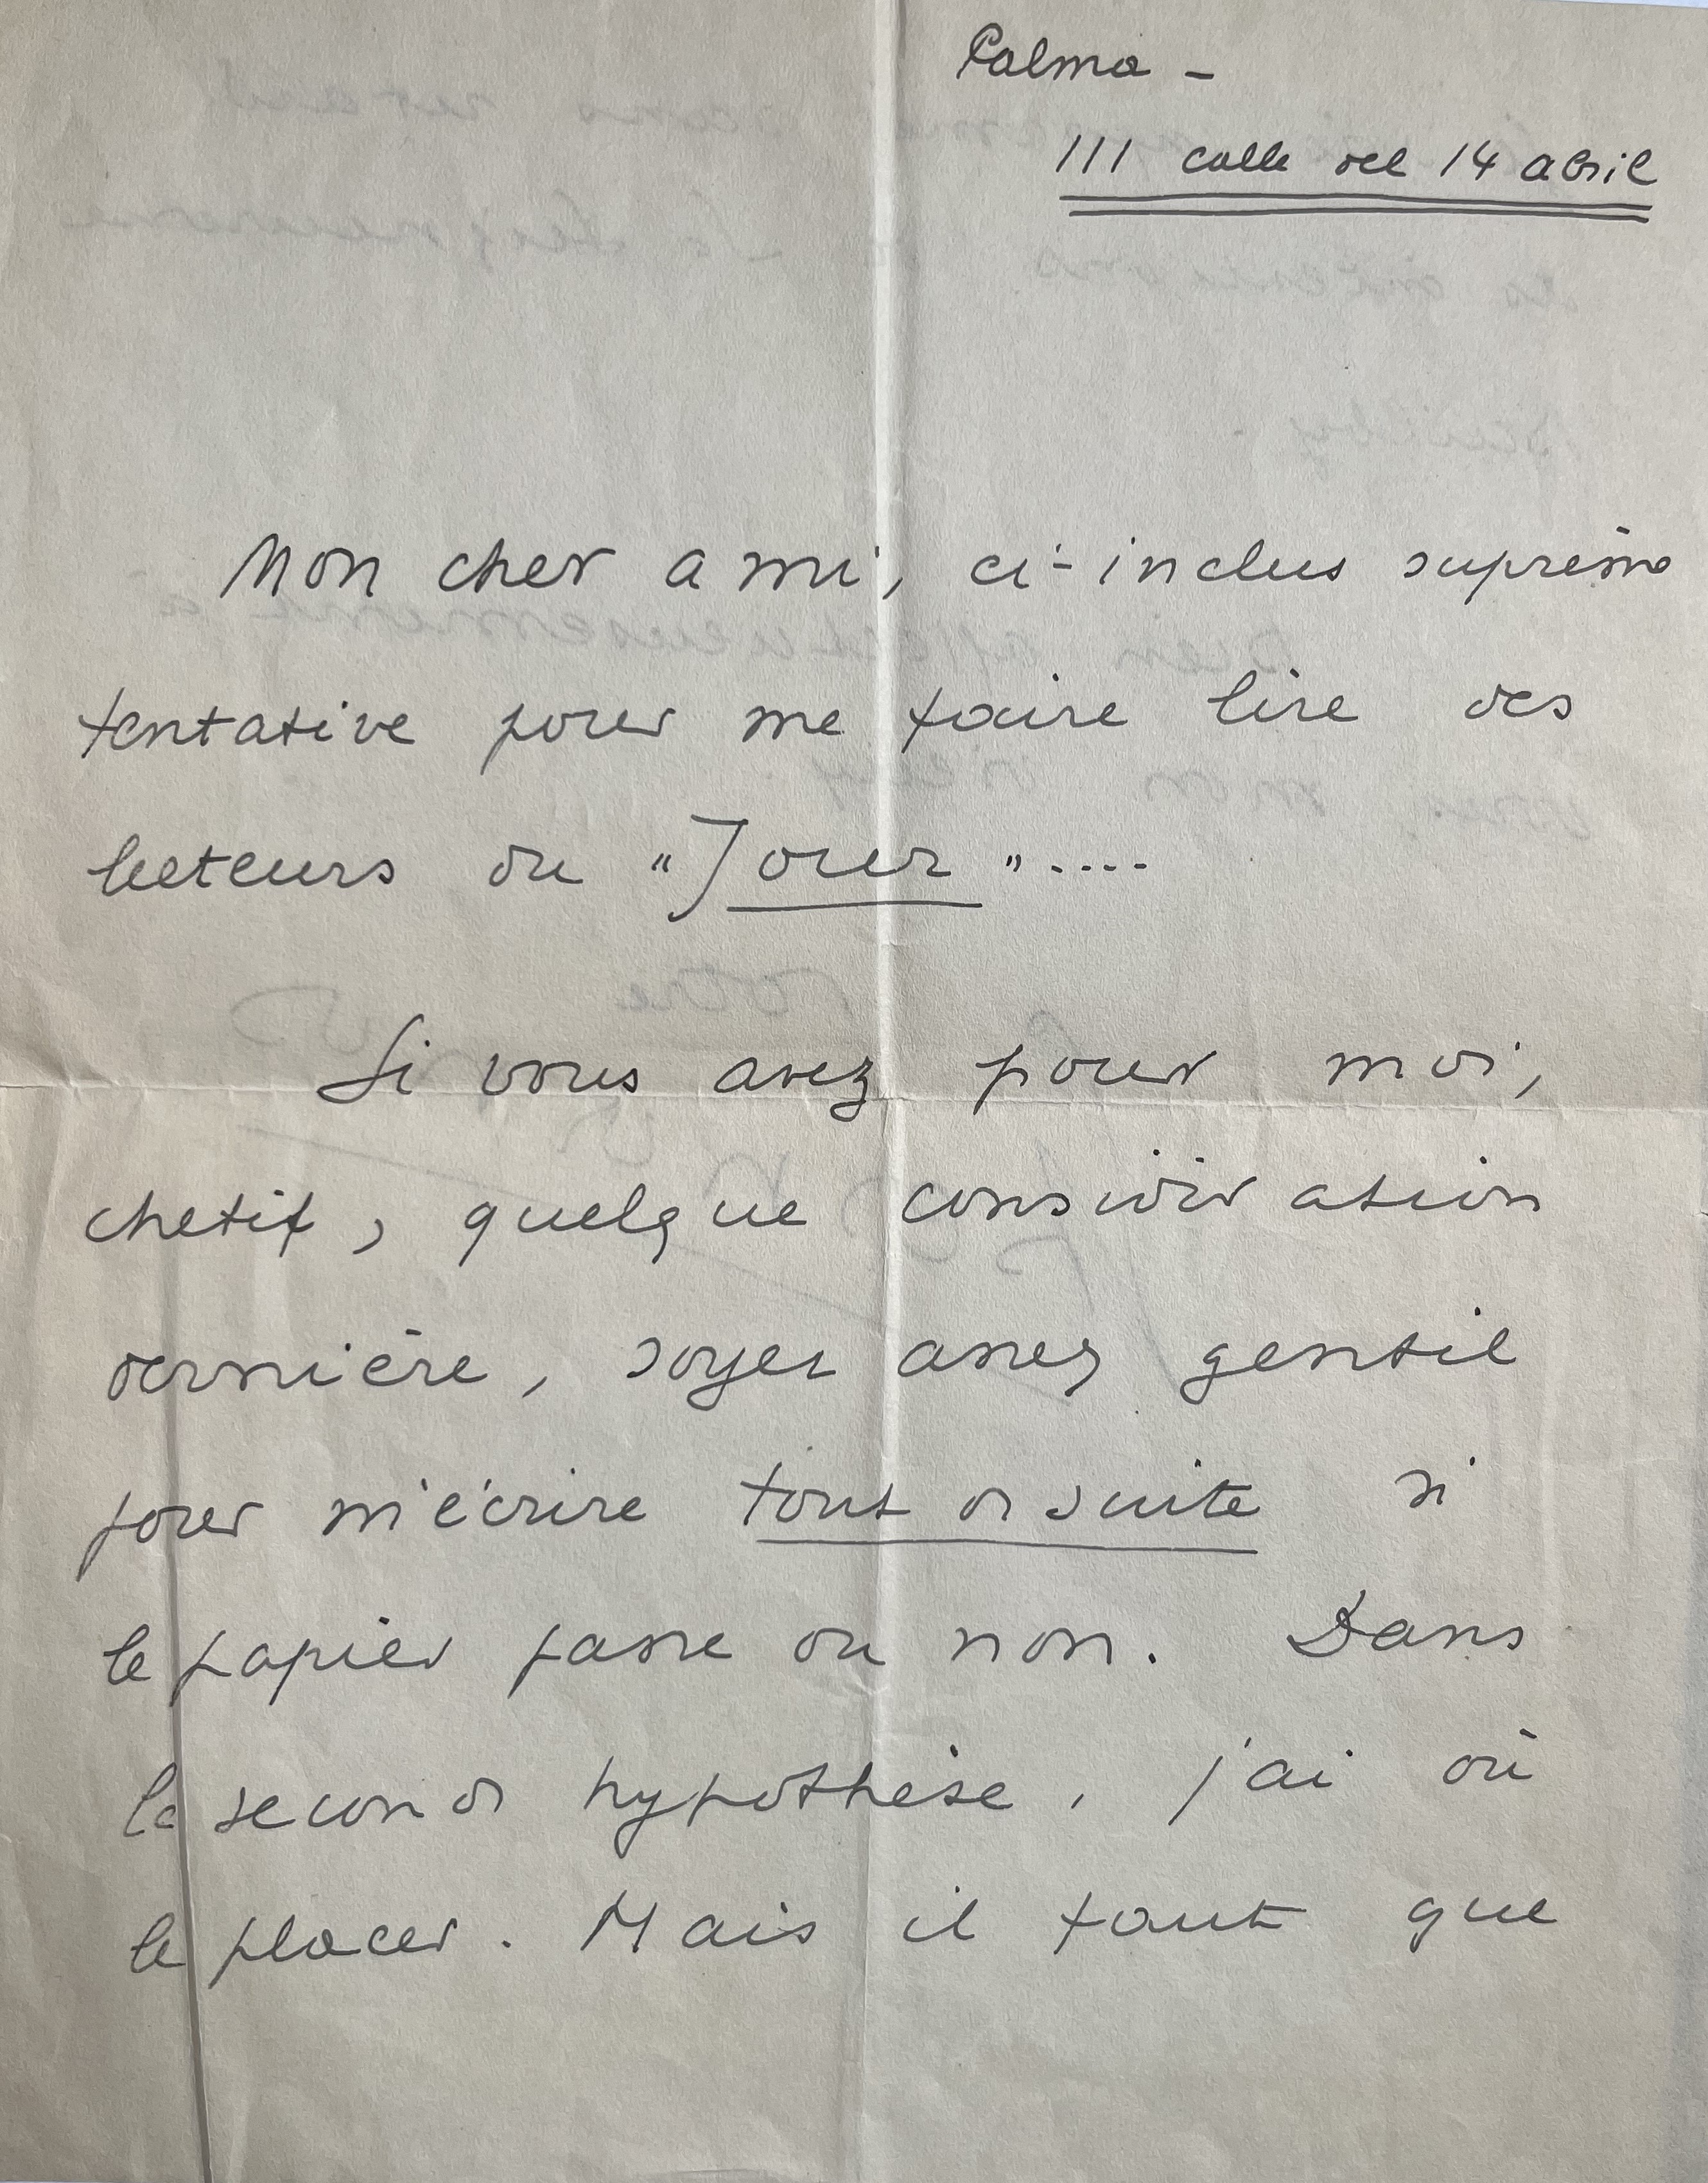 Palma -
111 calle del 14 abril
Mon cher ami, ci-inclus suprême
tentative pour me faire lire des
lecteurs du "Jour"....
Si vous avez pour moi,
chetif, quelque considération
dernière, soyez assez gentil
pour m'écrire tout de suite si
le papier passe ou non. Dans
la seconde hypothèse, j'ai où
le placer. Mais il faut que